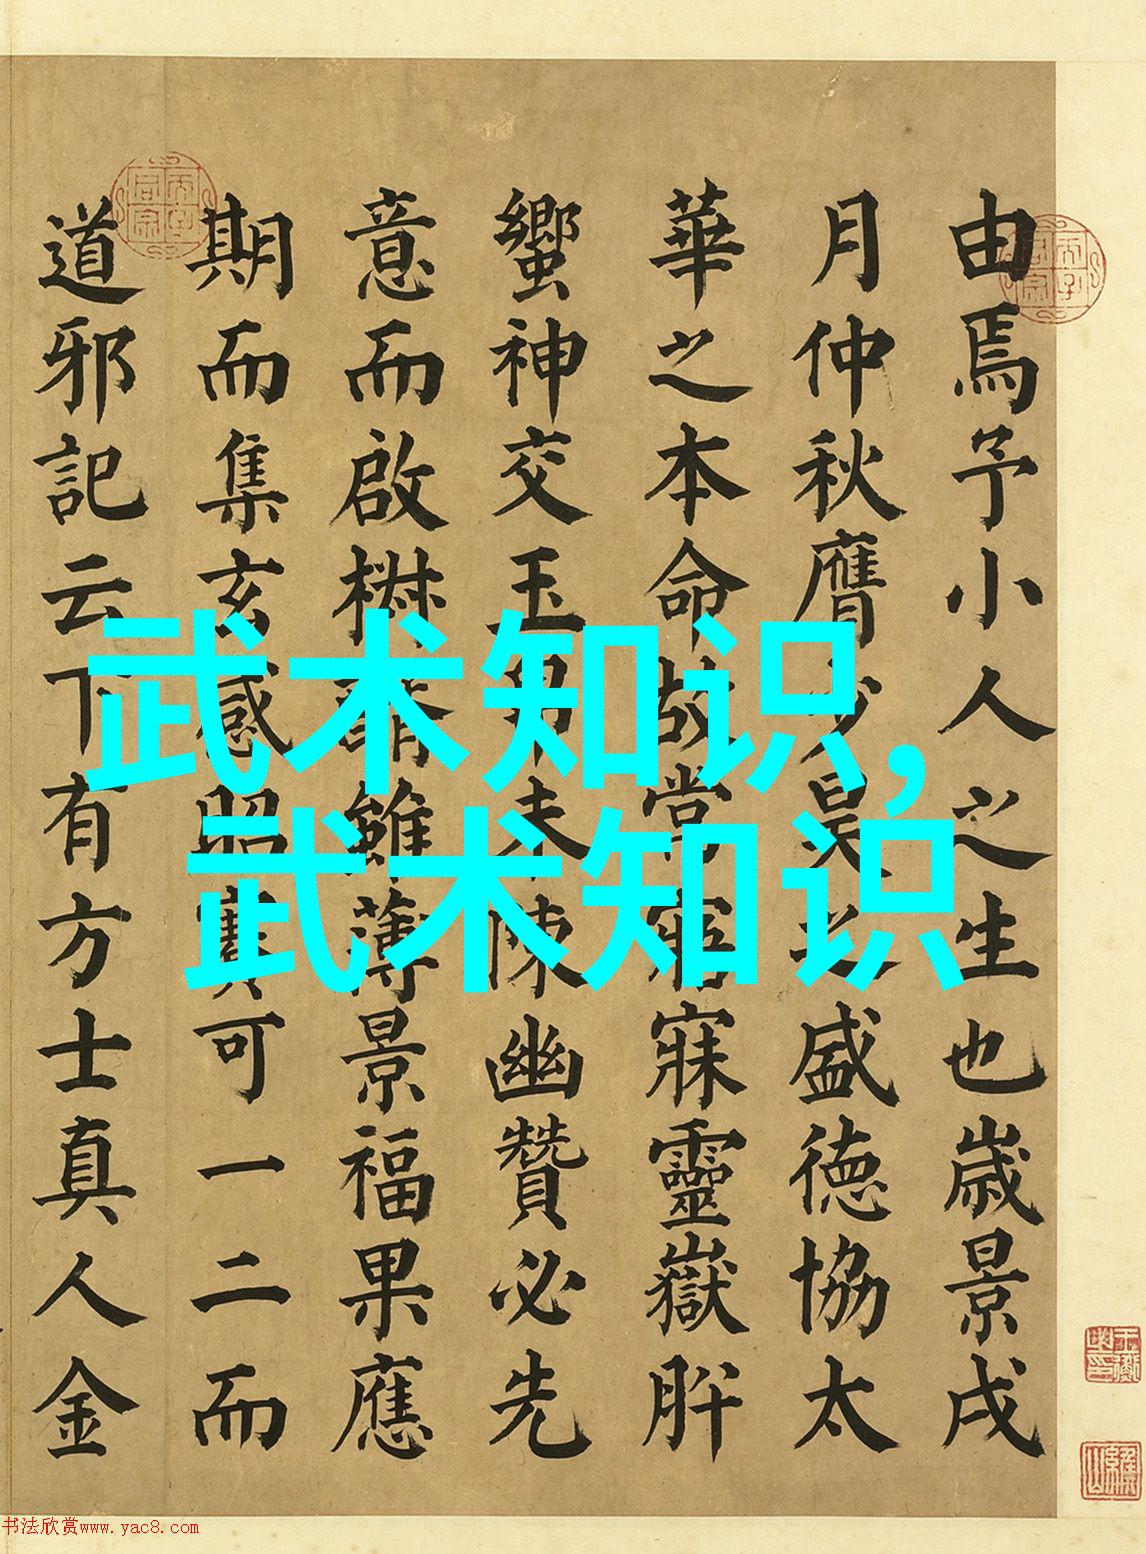 由焉予小人之生也歲景戌
月仲秋膺少昊之盛德協太
華之本命故常寤寐靈嶽肸
蠁神交玉帛未陳幽贊必先
意而啟椒雖薄景福果應
期而集玄感昭實可一二而
道邪記云下有方士真人金
武术知识,
武术知识
书法欣赏www.yac8.com